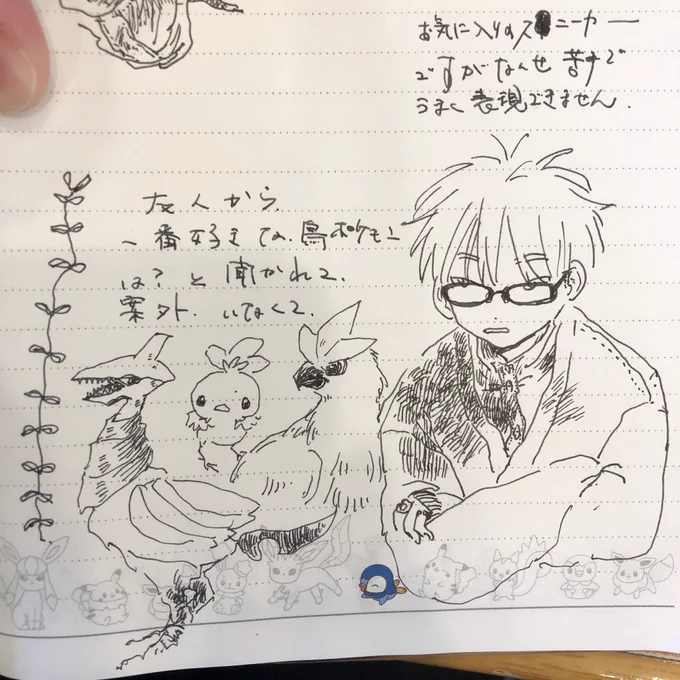 お気に入りのスニーカー
ですがなんせ苦手で
うまく表現できません.
友人から,
一番好きなの、鳥ポケモン
は?と聞かれて、
案外、いなくて、